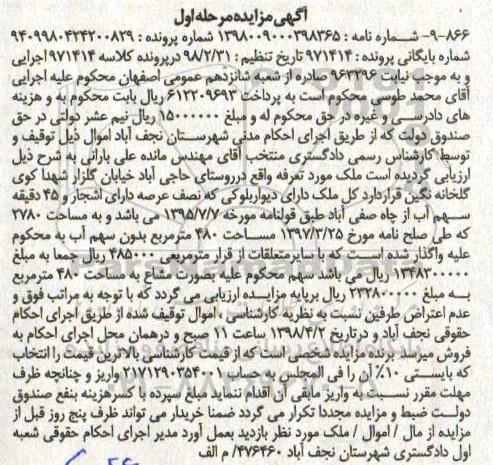 آگهی مزایده مرحله اول
۹-۸۶۶- شماره نامه : ۱۳۹۸۰۰۹۰۰۰۳۹۸۳۶۵ شماره پرونده : ۹۴۰۹۹۸۰۴۲۴۲۰۰۸۲۹
شماره بایگانی پرونده : ۹۷۱۴۱۴ تاریخ تنظیم : ۹۸/۲/۳۱ در پرونده کلاسه ۹۷۱۴۱۴ اجرایی
و به موجب نیابت ۹۶۳۳۹۶ صادره از شعبه شانزدهم عمومی اصفهان محکوم علیه اجرایی
آقای محمد طوسی محکوم است به پرداخت ۶۱۲۲۰۹۶۹۳ ریال بابت محکوم به و هزینه
های دادرسی و غیره در حق محکوم له و مبلغ ۱۵۰۰۰۰۰۰ ریال نیم عشر دولتی در حق
صندوق دولت که از طریق اجرای احکام مدنی شهرستان نجف آباد اموال ذیل توقیف و
توسط کارشناس رسمی دادگستری منتخب آقای مهندس مانده علی بارانی به شرح ذیل
ارزیابی گردیده است ملک مورد تعرفه واقع در روستای حاجی آباد خیابان گلزار شهدا کوی
گلخانه نگین قرار دارد کل ملک دارای دیوار بلوکی که نصف عرصه دارای اشجار و ۴۵ دقیقه
سهم آب از چاه صفی آباد طبق قولنامه مورخه ۱۳۹۵/۷/۷ می باشد و به مساحت ۲۷۸۰
که طی صلح نامه مورخ ۱۳۹۷/۳/۲۵ مساحت ۴۸۰ مترمربع بدون سهم آب به محکوم
علیه واگذار شده است که با سایر متعلقات از قرار مترمربعی ۴۸۵۰۰۰ ریال جمعا به مبلغ
۱۳۴۸۳۰۰۰۰۰ ریال می باشد سهم محکوم علیه بصورت مشاع به مساحت ۴۸۰ مترمربع
به مبلغ ۲۳۲۸۰۰۰۰۰ ریال بر پایه مزایده ارزیابی می گردد که با توجه به مراتب فوق و
عدم اعتراض طرفین نسبت به نظریه کارشناسی ، اموال توقیف شده از طریق اجرای احکام
حقوقی نجف آباد و در تاریخ ۱۳۹۸/۴/۲ ساعت ۱۱ صبح و در همان محل اجرای احکام به
فروش میرسد برنده مزایده شخصی است که از قیمت کارشناسی بالاترین قیمت را انتخاب
که بایستی ۱۰٪ آن را فی المجلس به حساب ۲۱۷۱۲۹۰۳۵۴۰۰۱ واریز و چنانچه ظرف
مهلت مقرر نسبت به واریز مابقی آن اقدام ننماید مبلغ سپرده با کسر هزینه بنفع صندوق
دولت ضبط و مزایده مجددا تکرار می گردد ضمنا خریدار می تواند ظرف پنج روز قبل از
مزایده از مال / اموال / ملک مورد نظر بازدید بعمل آورد مدیر اجرای احکام حقوقی شعبه
اول دادگستری شهرستان نجف آباد ۴۷۶۴۶۰/ م الف